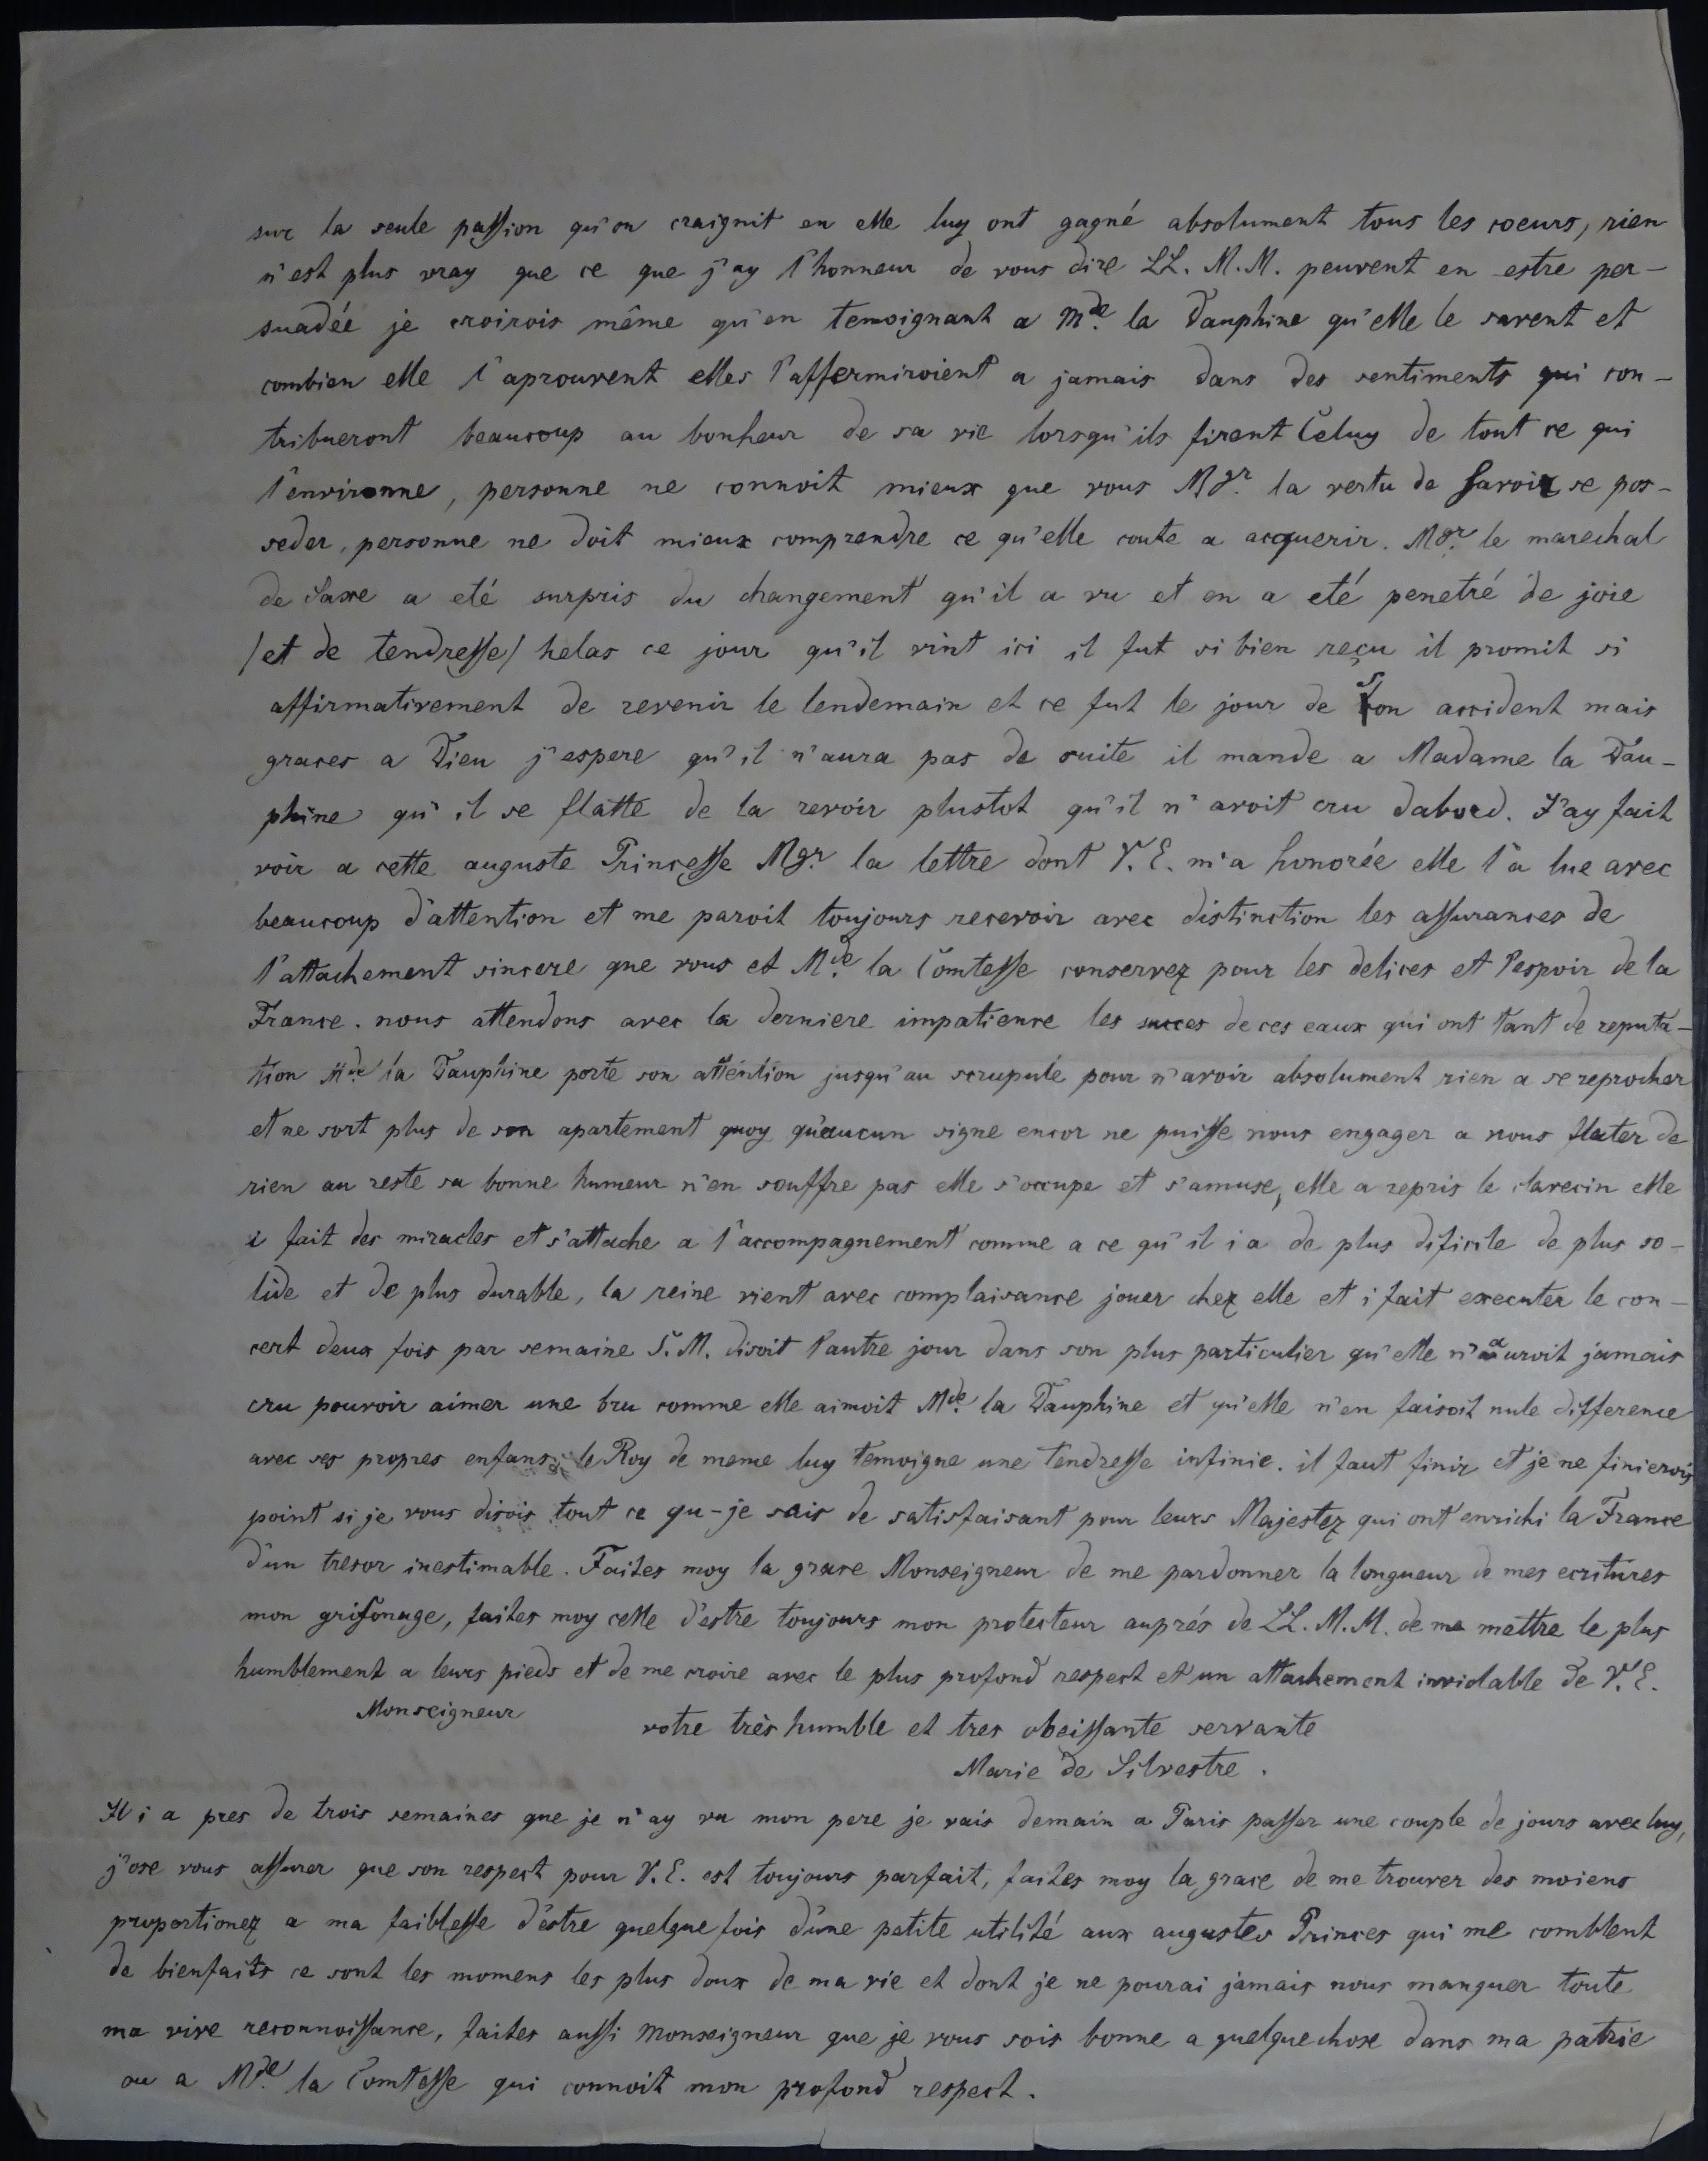 sur la seule passion qu'on craignit en elle luy ont gagné absolument tous les coeurs, rien
n'est plus vray que ce que j'ay l'honneur de vous dire LL. M.M. peuvent en estre per-
suadée je croirois même qu'en temoignant a Mde. la Dauphine qu'elle le savent et
combien elle l'aprouvent elles l'affermiroient a jamais dans des sentiments qui con-
tribueront beaucoup au bonheur de sa vie lorsqu'ils firent Celuy de tout ce qui
l'environne, personne ne connoit mieux que vous Mgr. la vertu de Savoir se pos-
seder, personne ne doit mieux comprendre ce qu'elle coute a acquerir. Mgr. le marechal
de Saxe a eté surpris du changement qu'il a vu et en a eté penetré de joie
/et de tendresse/ helas ce jour qu'il vint ici il fut si bien reçu il promit si
affirmativement de revenir le lendemain et ce fut le jour de son accident mais
graces a Dieu j'espere qu'il n'aura pas de suite il mande a Madame la Dau-
phine qu'il se flatte de la revoir plustot qu'il n'avoit cru dabord. J'ay fait
voir a cette auguste Princesse Mgr. la lettre dont V. E. m'a honorée elle l'a lue avec
beaucoup d'attention et me paroit toujours recevoir avec distinction les assurances de
l'attachement sincere que vous et Mde. la Comtesse conservez pour les delices et l'espoir de la
France. nous attendons avec la derniere impatience les succes de ces eaux qui ont tant de reputa-
tion Mde. la Dauphine porte son attention jusqu'au scrupule pour n'avoir absolument rien a se reprocher
et ne sort plus de son apartement quoy qu'aucun signe encor ne puisse nous engager a nous flater de
rien au reste sa bonne humeur n'en souffre pas elle s'occupe et s'amuse, elle a repris le clavecin elle
i fait des miracles et s'attache a l'accompagnement comme a ce qu'il i a de plus dificile de plus so-
lide et de plus durable, la reine vient avec complaisance jouer chez elle et i fait executer le con-
cert deux fois par semaine S. M. disoit l'autre jour dans son plus particulier qu'elle n'auroit jamais
cru pouvoir aimer une bru comme elle aimoit Mde. la Dauphine et qu'elle n'en faisoit nule difference
avec ses propres enfans, le Roy de meme luy temoigne une tendresse infinie. il faut finir et je ne finierois
point si je vous disois tout ce qu-je sais de satisfaisant pour leurs Majestez qui ont enrichi la France
d'un tresor inestimable. Faites moy la grace Monseigneur de me pardonner la longueur de mes ecritures
mon grifonage, faites moy celle d'estre toujours mon protecteur auprés de LL. M. M. de me mettre le plus
humblement a leurs pieds et de me croire avec le plus profond respect et un attachement inviolable de V. E.
Monseigneur
votre très humble et tres obeissante servante
Marie de Silvestre.
Il i a pres de trois semaines que je n'ay vu mon pere je vais demain a Paris passer une couple de jours avec luy,
j'ose vous assurer que son respect pour V. E. est toujours parfait, faites moy la grace de me trouver des moiens
proportionez a ma faiblesse d'estre quelque fois d'une petite utilité aux augustes Princes qui me comblent
de bienfaits ce sont les momens les plus doux de ma vie et dont je ne pourai jamais vous manquer toute
ma vive reconnoissance, faites aussi Monseigneur que je vous sois bonne a quelquechose dans ma patrie
ou a Mde. la Comtesse qui connoit mon profond respect.